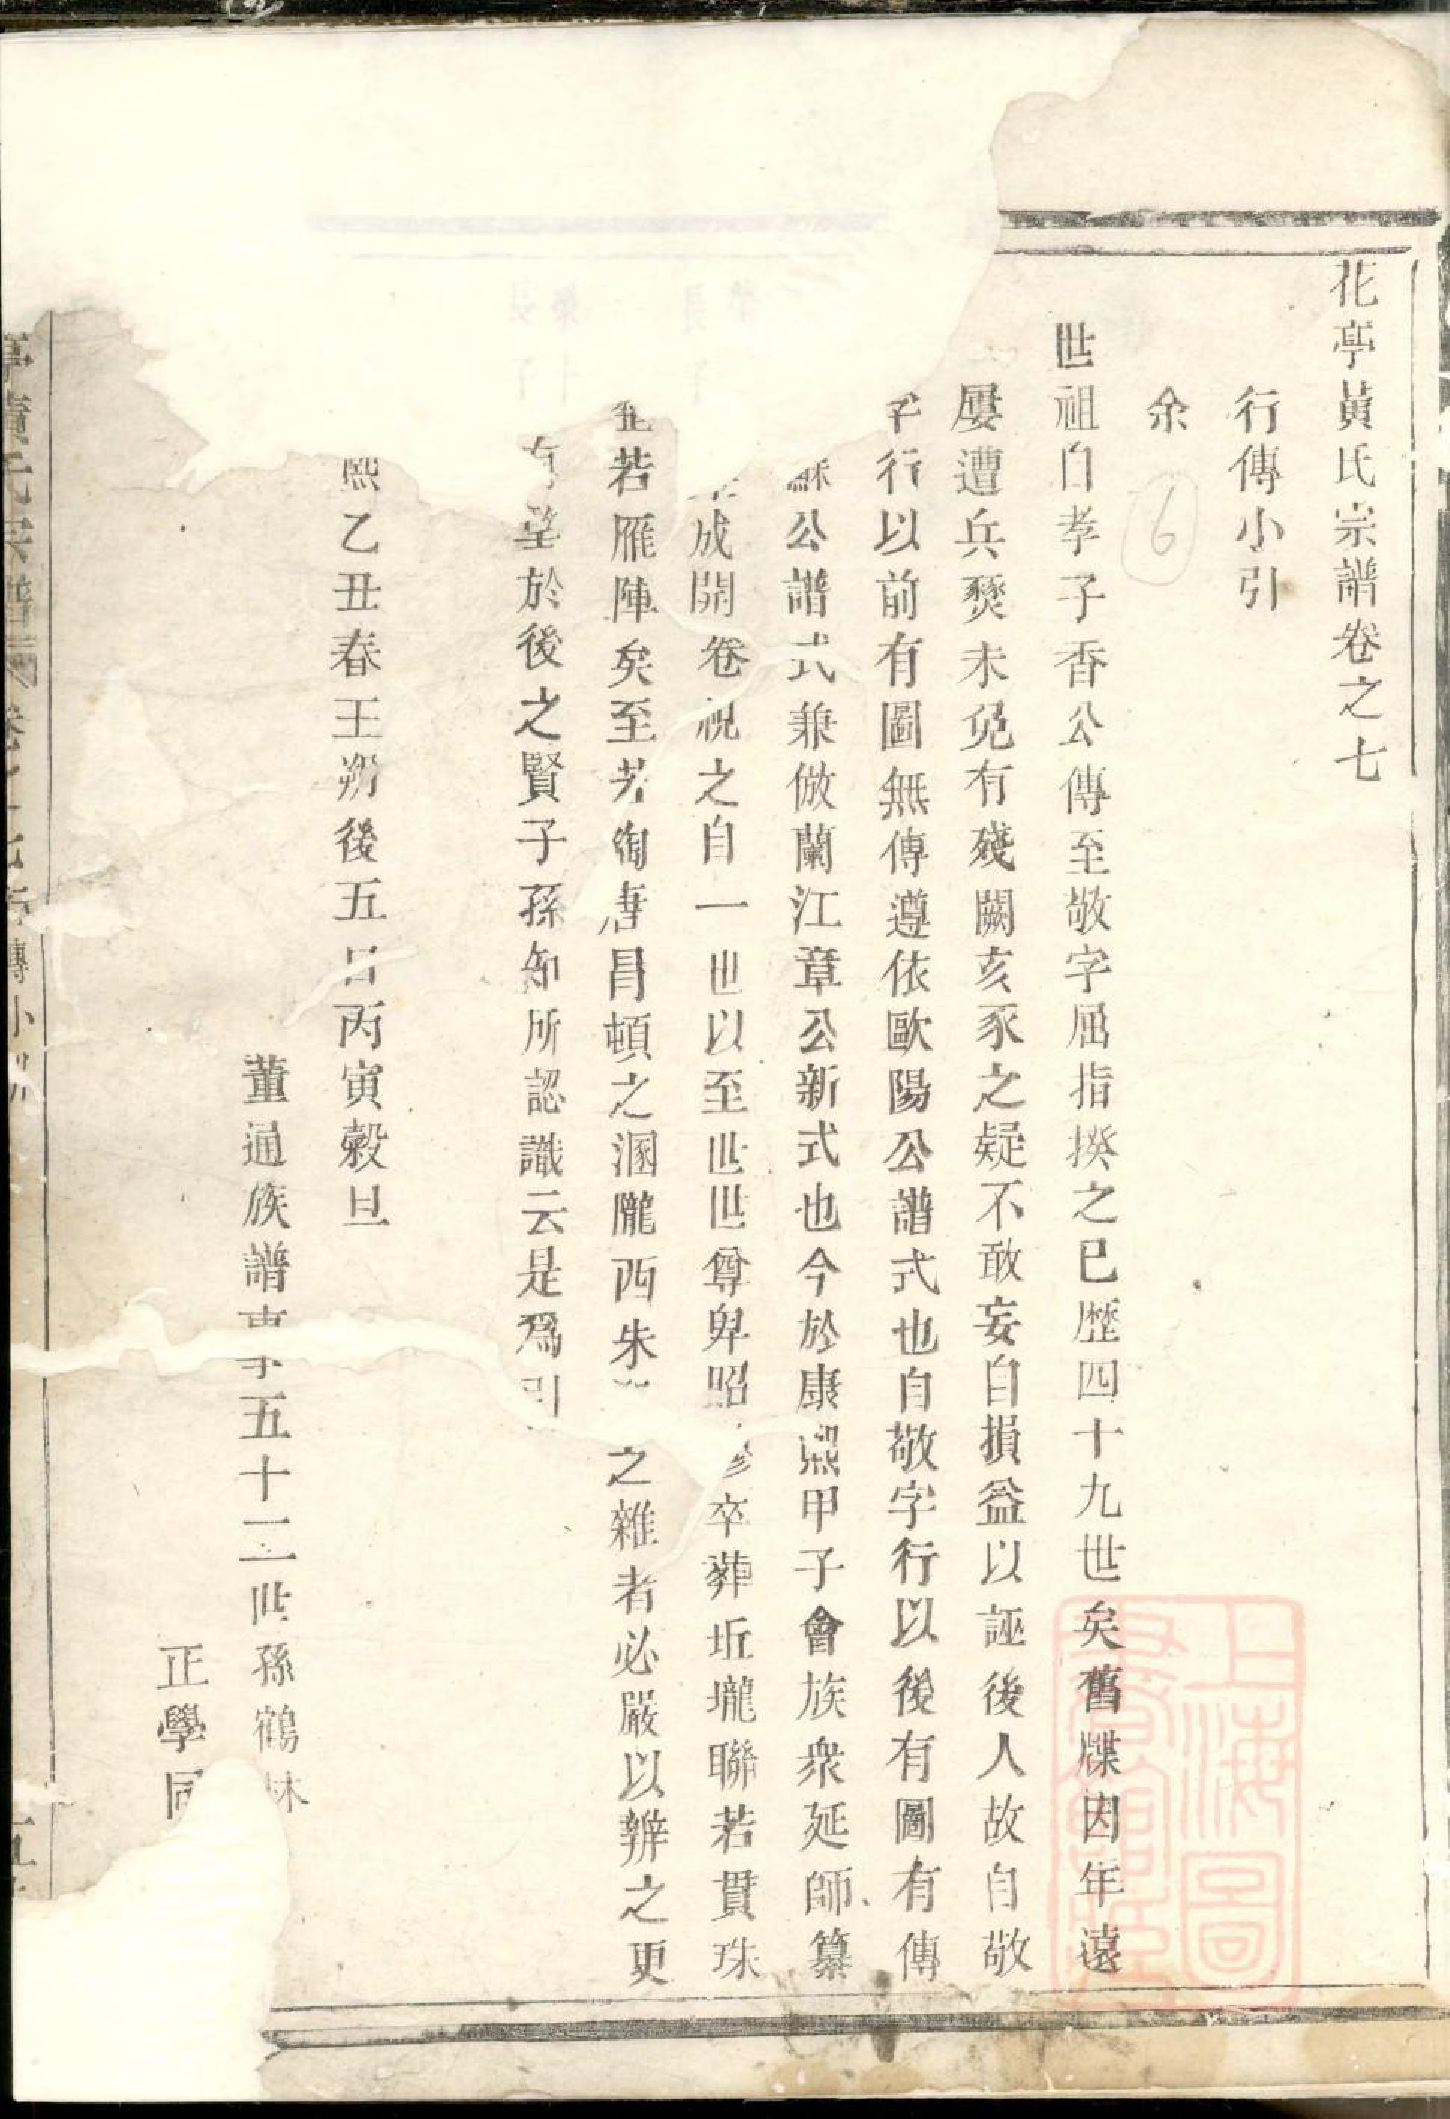 花亭黃氏宗譜卷之七
行傳小引
余
世祖自孝子香公傳至敬字屈指揆之已歷四十九世矣舊牒因年遠
屢遭兵燹未免有殘闕亥豕之疑不敢妄自損益以誣後人故自敬
字行以前有圖無傳遵依歐陽公譜式也自敬字行以後有圖有傳
蘇公譜式兼倣蘭江章公新式也今於康熙甲子會族衆延師纂
成開卷視之自一世以至世世尊卑昭穆卒葬坵壠聯若貫珠
若雁陣矣至若淘唐昌頓之溷隴西朱之雜者必嚴以辨之更
有望於後之賢子孫知所認識云是爲引
熙乙丑春王朔後五日丙寅穀旦
董通族譜事五十二世孫鶴林
正學同
亭黃氏宗譜 卷之七行傳小引
上海圖書館藏
6